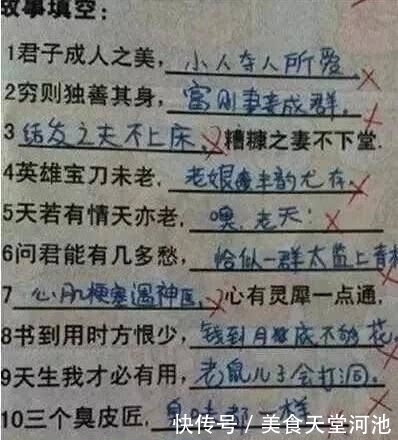 故事填空：
1君子成人之美，小人夺人所爱
2穷则独善其身，富则妻妾成群.
3结发之夫不上床，糟糠之妻不下堂.
4英雄宝刀未老，老娘半韵尤存.
5天若有情天亦老，噢，老天！
6问君能有几多愁，恰似一群太监上青
7 心肌梗塞遇神医，心有灵犀一点通，
8书到用时方恨少，钱到月底不够花.
9天生我才必有用，老鼠儿子会打洞.
10三个臭皮匠，一样
快传号/美食天堂河池